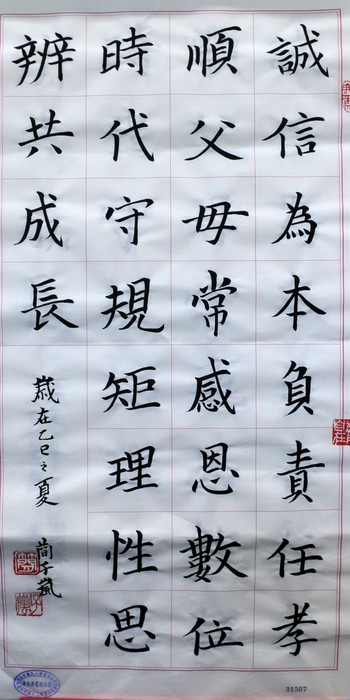 誠信為本負責任孝
順父毋常感恩數位
時代守規矩理性思
辨共成長
歲在乙巳之夏 簡子
31507